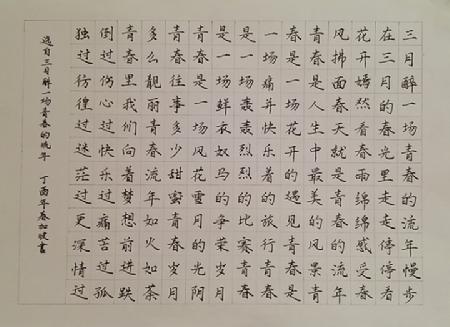 三月醉一场青春的流年慢步
在三月的春光里走走停停看
花开嫣然看春雨绵绵感受春
风拂面春天就是青春的流年
青春是人生中最美的风景青
春是一场花开的遇见青春是
一场痛并快乐着的旅行青春
是一场轰轰烈烈的比赛青春
是一场鲜衣奴马的争荣岁月
青春是一场风花雪月的光阴
青春往事多少甜蜜青春岁月
多么靓丽青春流年如火如荼
青春里我们向着梦想前进跌
倒过伤心过快乐过痛苦过孤
独过彷徨过迷茫过更深情过
选自三月醉一场青春的流年 丁酉年春 书